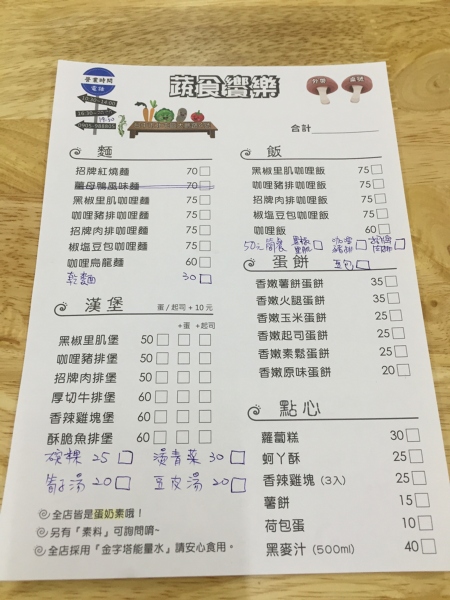 蔬食饗樂
營業時間
電話
外帶 桌號
合計
麵
招牌紅燒麵 70
薑母鴨風味麵 70
黑椒里肌咖哩麵 75
咖哩豬排咖哩麵 75
招牌肉排咖哩麵 75
椒塩豆包咖哩麵 75
咖哩烏龍麵 60
乾麵 30
飯
黑椒里肌咖哩飯 75
咖哩豬排咖哩飯 75
招牌肉排咖哩飯 75
椒塩豆包咖哩飯 75
咖哩飯 60
50元簡餐 黑椒里肌 咖哩豬排 招牌肉排
豆包
漢堡 蛋/起司+10元
+蛋 +起司
黑椒里肌堡 50
咖哩豬排堡 50
招牌肉排堡 50
厚切牛排堡 60
香辣雞塊堡 60
酥脆魚排堡 60
碗粿 25 燙青菜 30
筍子湯 20 豆皮湯 20
蛋餅
香嫩薯餅蛋餅 35
香嫩火腿蛋餅 35
香嫩玉米蛋餅 25
香嫩起司蛋餅 25
香嫩素鬆蛋餅 25
香嫩原味蛋餅 20
點心
蘿蔔糕 30
蚵丫酥 25
香辣雞塊(3入) 25
薯餅 15
荷包蛋 10
黑麥汁(500ml) 40
◎全店皆是蛋奶素哦!
◎另有「素料」可詢問唷~
◎全店採用「金字塔能量水」請安心食用。